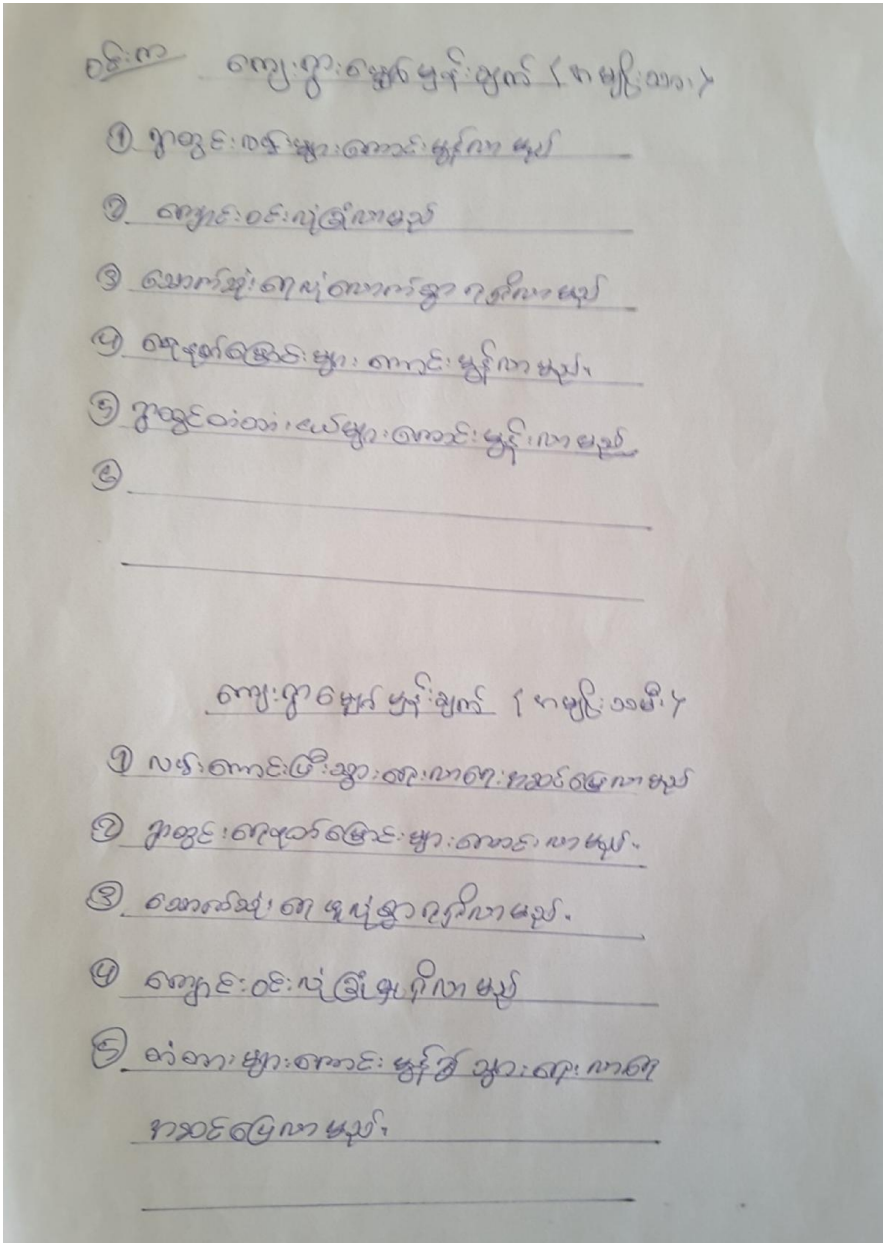 ဝမ်းကာ ကျေးရွာမျှော်မှန်းချက် (အမျိုးသား)
① ရွာတွင်းလမ်းများကောင်းမွန်လာမည်
② ကျောင်းဝင်းလုံခြုံလာမည်
③ သောက်သုံးရေလုံလောက်စွာရရှိလာမည်
④ ရေနုတ်မြောင်းများ ကောင်းမွန်လာမည်။
⑤ ရွာတွင်းတံတားငယ်များကောင်းမွန်းလာမည်
⑥
ကျေးရွာမျှော်မှန်းချက် (အမျိုးသမီး)
① လမ်းကောင်းပြီးသွားရေးလာရေးအဆင်ပြေလာမည်
② ရွာတွင်းရေနုတ်မြောင်းများကောင်းလာမည်။
③ သောက်သုံးရေ ဖူလုံစွာရရှိလာမည်။
④ ကျောင်းဝင်းလုံခြုံမှုရှိလာမည်
⑤ တံတားများကောင်းမွန်၍ သွားရေးလာရေ
အဆင်ပြေလာမည်။